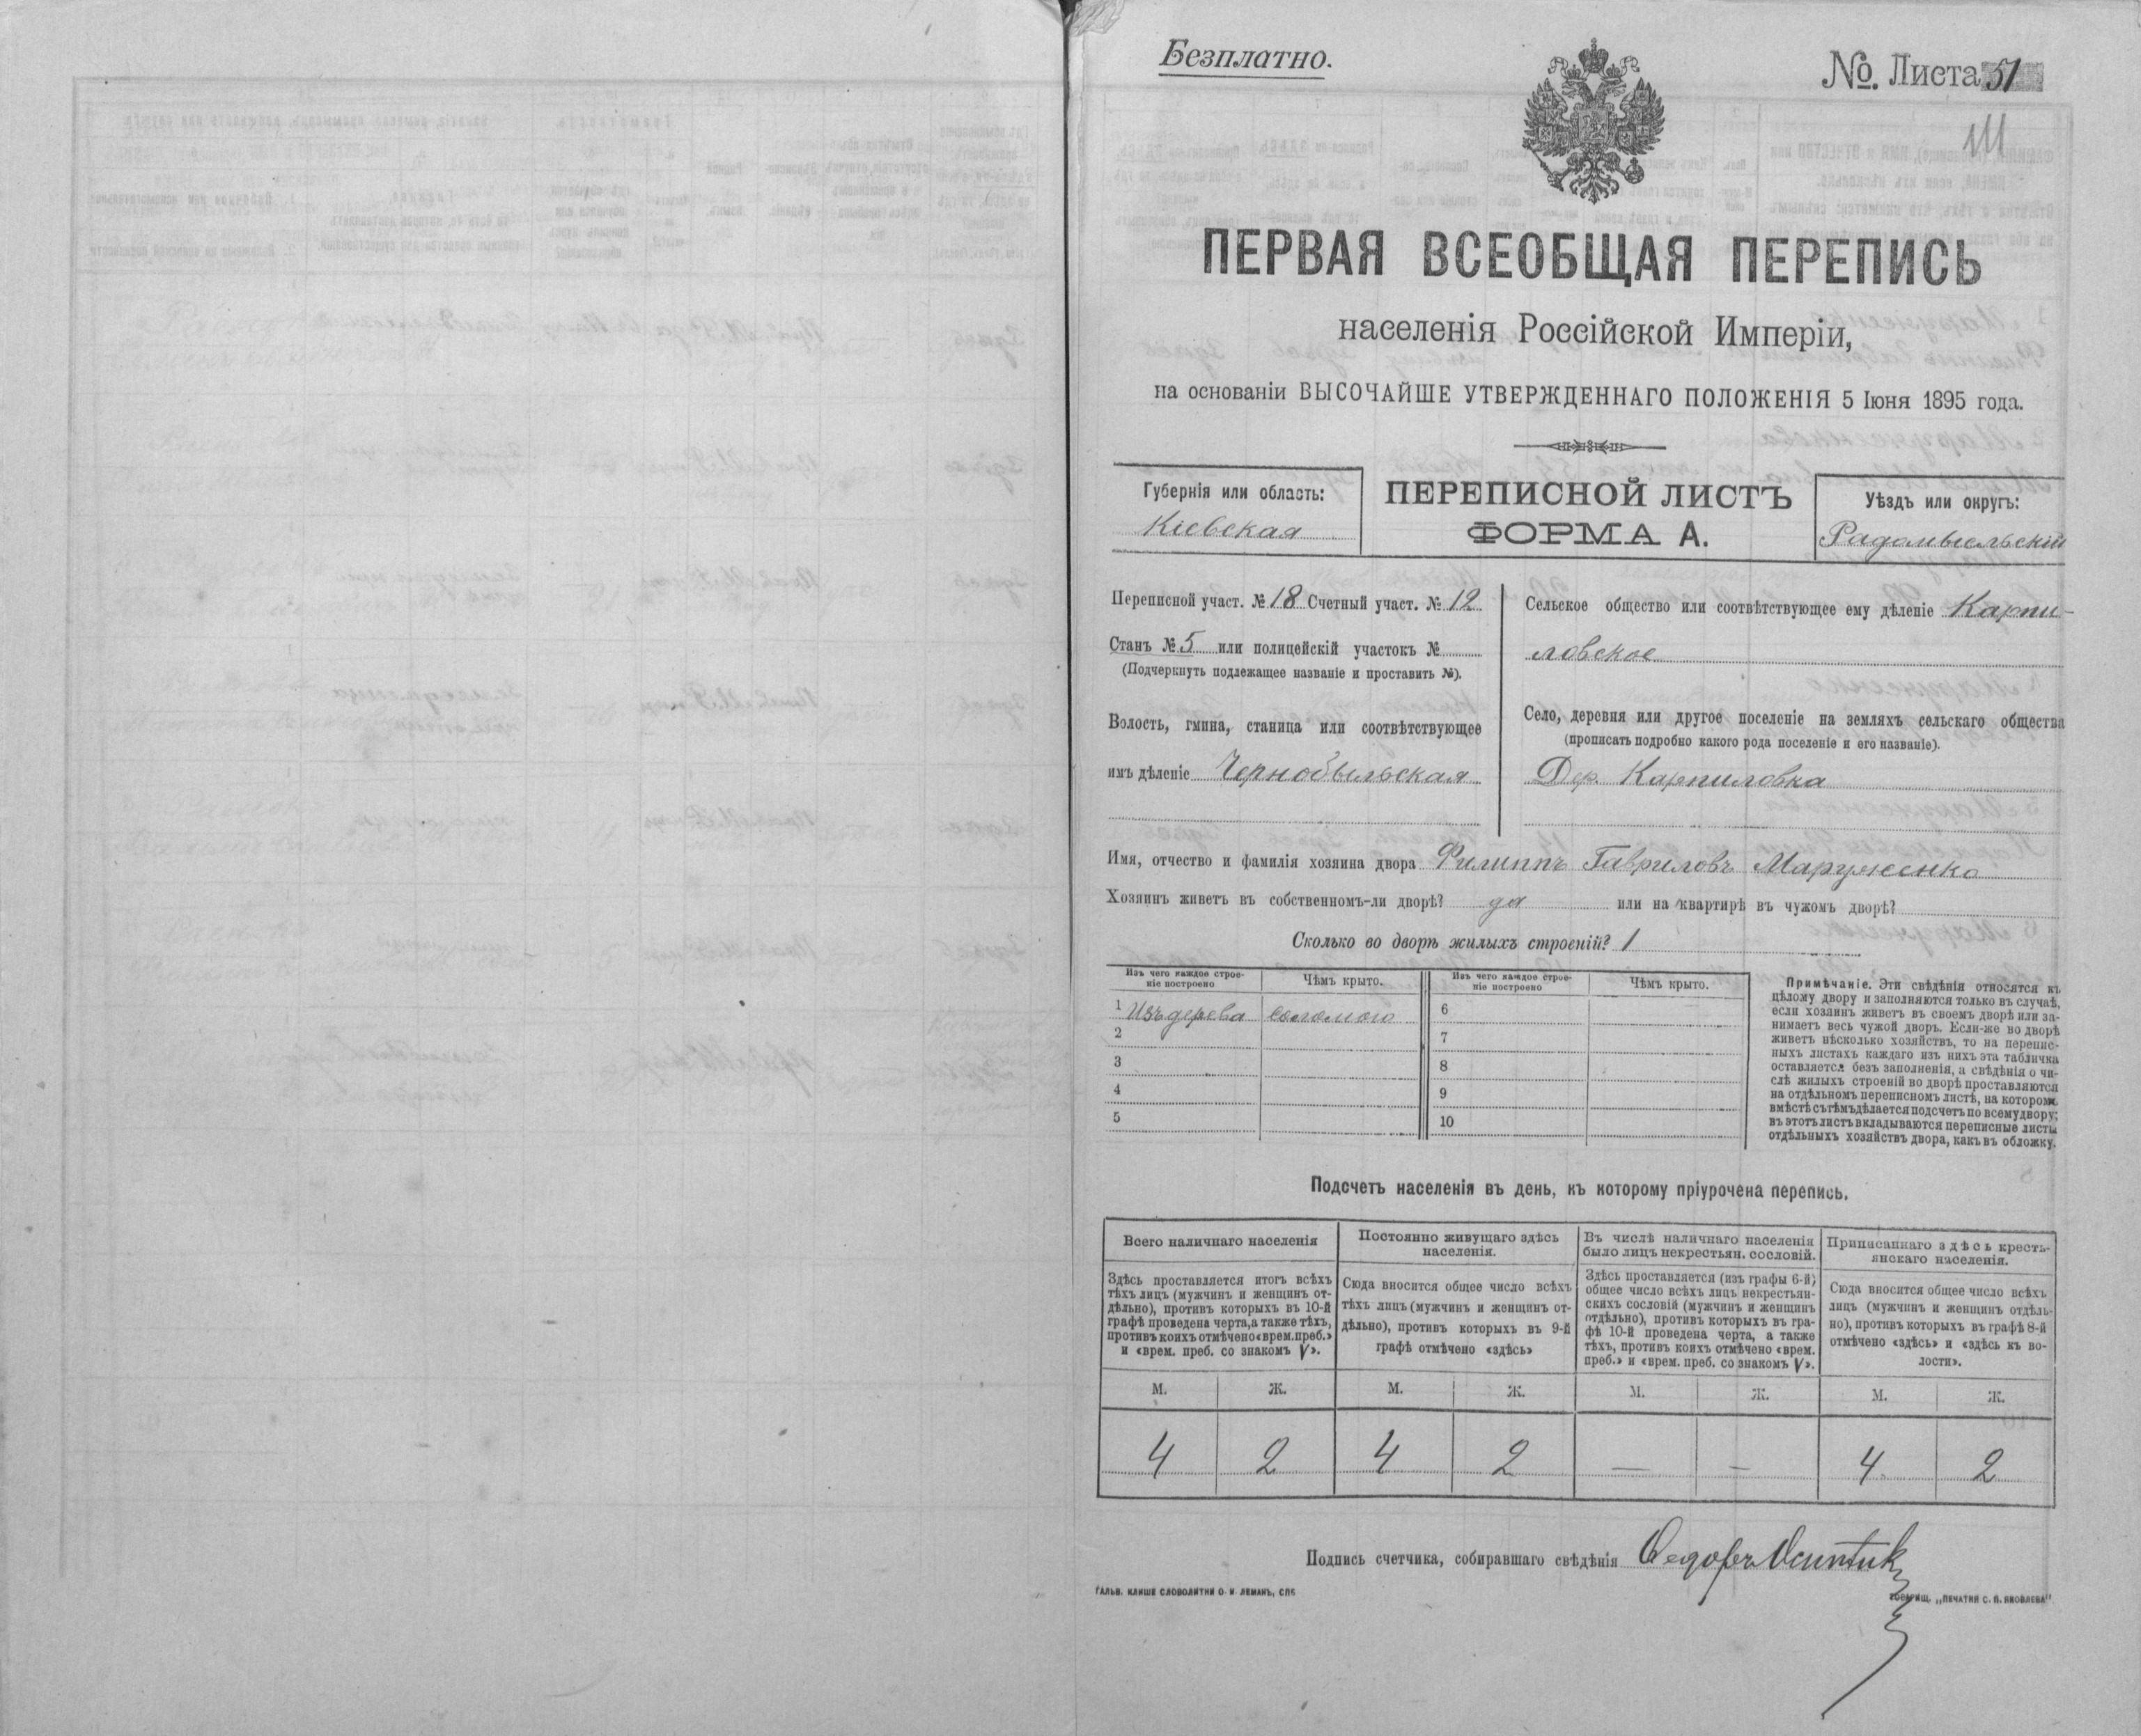 Безплатно.
№. Листа 51
III
ПЕРВАЯ ВСЕОБЩАЯ ПЕРЕПИСЬ
населенія Россійской Имперіи,
на основаніи ВЫСОЧАЙШЕ УТВЕРЖДЕННАГО ПОЛОЖЕНІЯ 5 Іюня 1895 года.
Губернія или область:
Кіевская
ПЕРЕПИСНОЙ ЛИСТЪ
ФОРМА А.
Уѣздъ или округъ:
Радомысльскій
Переписной участ. № 18 Счетный участ. № 12
Станъ № 5 или полицейскій участокъ №
(Подчеркнуть подлежащее названіе и проставить №).
Волость, гмина, станица или соотвѣтствующее
имъ дѣленіе Чернобыльская
Сельское общество или соотвѣтствующее ему дѣленіе Карпи-
ловское
Село, деревня или другое поселеніе на земляхъ сельскаго общества
(прописать подробно какого рода поселеніе и его названіе).
Дер. Карпиловка
Имя, отчество и фамилія хозяина двора Филиппъ Гавриловъ Маруженко
Хозяинъ живетъ въ собственномъ-ли дворѣ? да или на квартирѣ въ чужомъ дворѣ?
Сколько во дворѣ жилыхъ строеній? 1
Изъ чего каждое строе-
ніе построено
Чѣмъ крыто.
Изъ чего каждое строе-
ніе построено
Чѣмъ крыто.
1 Изъ дерева соломою
2
3
4
5
6
7
8
9
10
Примѣчаніе. Эти свѣдѣнія относятся къ
цѣлому двору и заполняются только въ случаѣ,
если хозяинъ живетъ въ своемъ дворѣ или за-
нимаетъ весь чужой дворъ. Если-же во дворѣ
живетъ нѣсколько хозяйствъ, то на перепис-
ныхъ листахъ каждаго изъ нихъ эта табличка
оставляется безъ заполненія, а свѣдѣнія о чи-
слѣ жилыхъ строеній во дворѣ проставляются
на отдѣльномъ переписномъ листѣ, на которомъ
вмѣстѣ съ тѣмъ дѣлается подсчетъ по всему двору;
въ этотъ листъ вкладываются переписные листы
отдѣльныхъ хозяйствъ двора, какъ въ обложку.
Подсчетъ населенія въ день, къ которому пріурочена перепись.
Всего наличнаго населенія
Здѣсь проставляется итогъ всѣхъ
тѣхъ лицъ (мужчинъ и женщинъ от-
дѣльно), противъ которыхъ въ 10-й
графѣ проведена черта, а также тѣхъ,
противъ коихъ отмѣчено «врем. преб.»
и «врем. преб. со знакомъ V».
Постоянно живущаго здѣсь
населенія.
Сюда вносится общее число всѣхъ
тѣхъ лицъ (мужчинъ и женщинъ от-
дѣльно), противъ которыхъ въ 9-й
графѣ отмѣчено «здѣсь»
Въ числѣ наличнаго населенія
было лицъ некрестьян. сословій.
Здѣсь проставляется (изъ графы 6-й)
общее число всѣхъ лицъ некрестьян-
скихъ сословій (мужчинъ и женщинъ
отдѣльно), противъ которыхъ въ гра-
фѣ 10-й проведена черта, а также
тѣхъ, противъ коихъ отмѣчено «врем.
преб.» и «врем. преб. со знакомъ V».
Приписаннаго здѣсь кресть-
янскаго населенія.
Сюда вносится общее число всѣхъ
лицъ (мужчинъ и женщинъ отдѣль-
но), противъ которыхъ въ графѣ 8-й
отмѣчено «здѣсь» и «здѣсь къ во-
лости».
М. Ж. М. Ж. М. Ж. М. Ж.
4 2 4 2 — — 4 2
Подпись счетчика, собиравшаго свѣдѣнія Федоръ
ГАЛЬВ. КЛИШЕ СЛОВОЛИТНИ О. И. ЛЕМАНЪ, СПБ
ТОВАРИЩ. „ПЕЧАТНЯ С. П. ЯКОВЛЕВА"